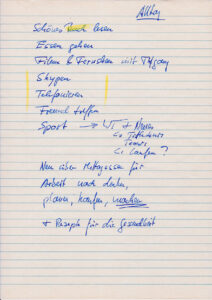 Alltag
Schönes Buch lesen
Essen gehen
Filme & Fernsehen mit
Skypen
Telefonieren
Freund treffen
Sport → WT +
Tischtennis
Tennis
Laufen ?
Neu über Mittagessen für
Arbeit nach denken,
planen, kaufen, machen
+ Rezepte für die Gesundheit